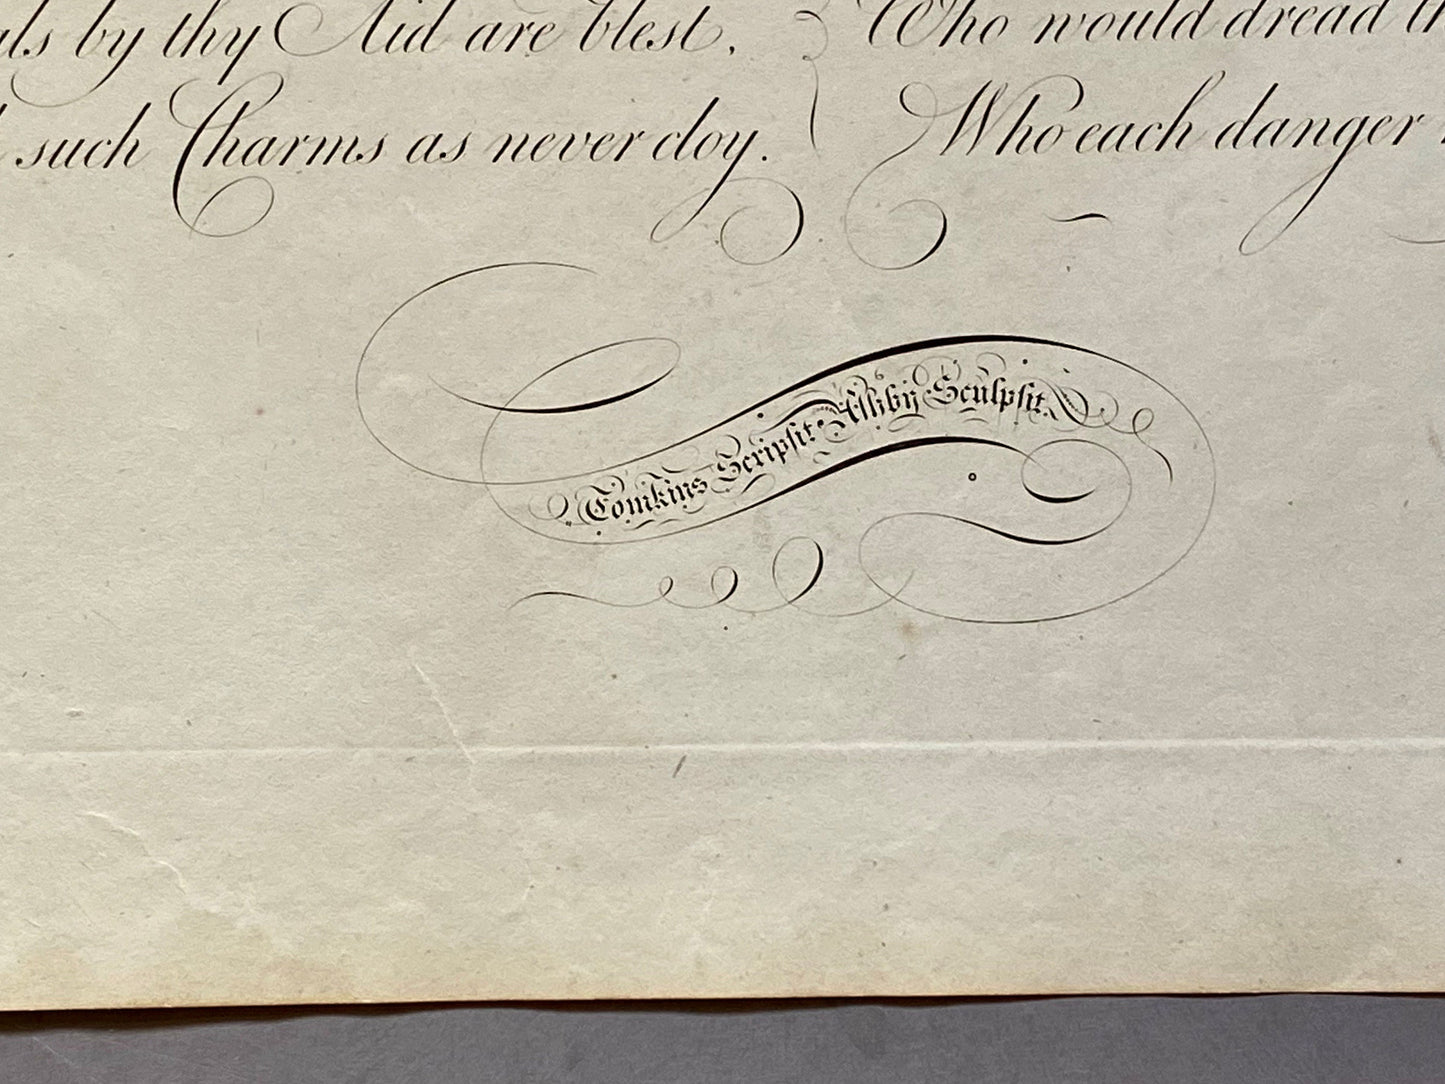 by thy Aid are blest,
such Charms as never cloy.
Who would dread
Who each danger
Tomkins Scripsit Ashby Sculpsit.